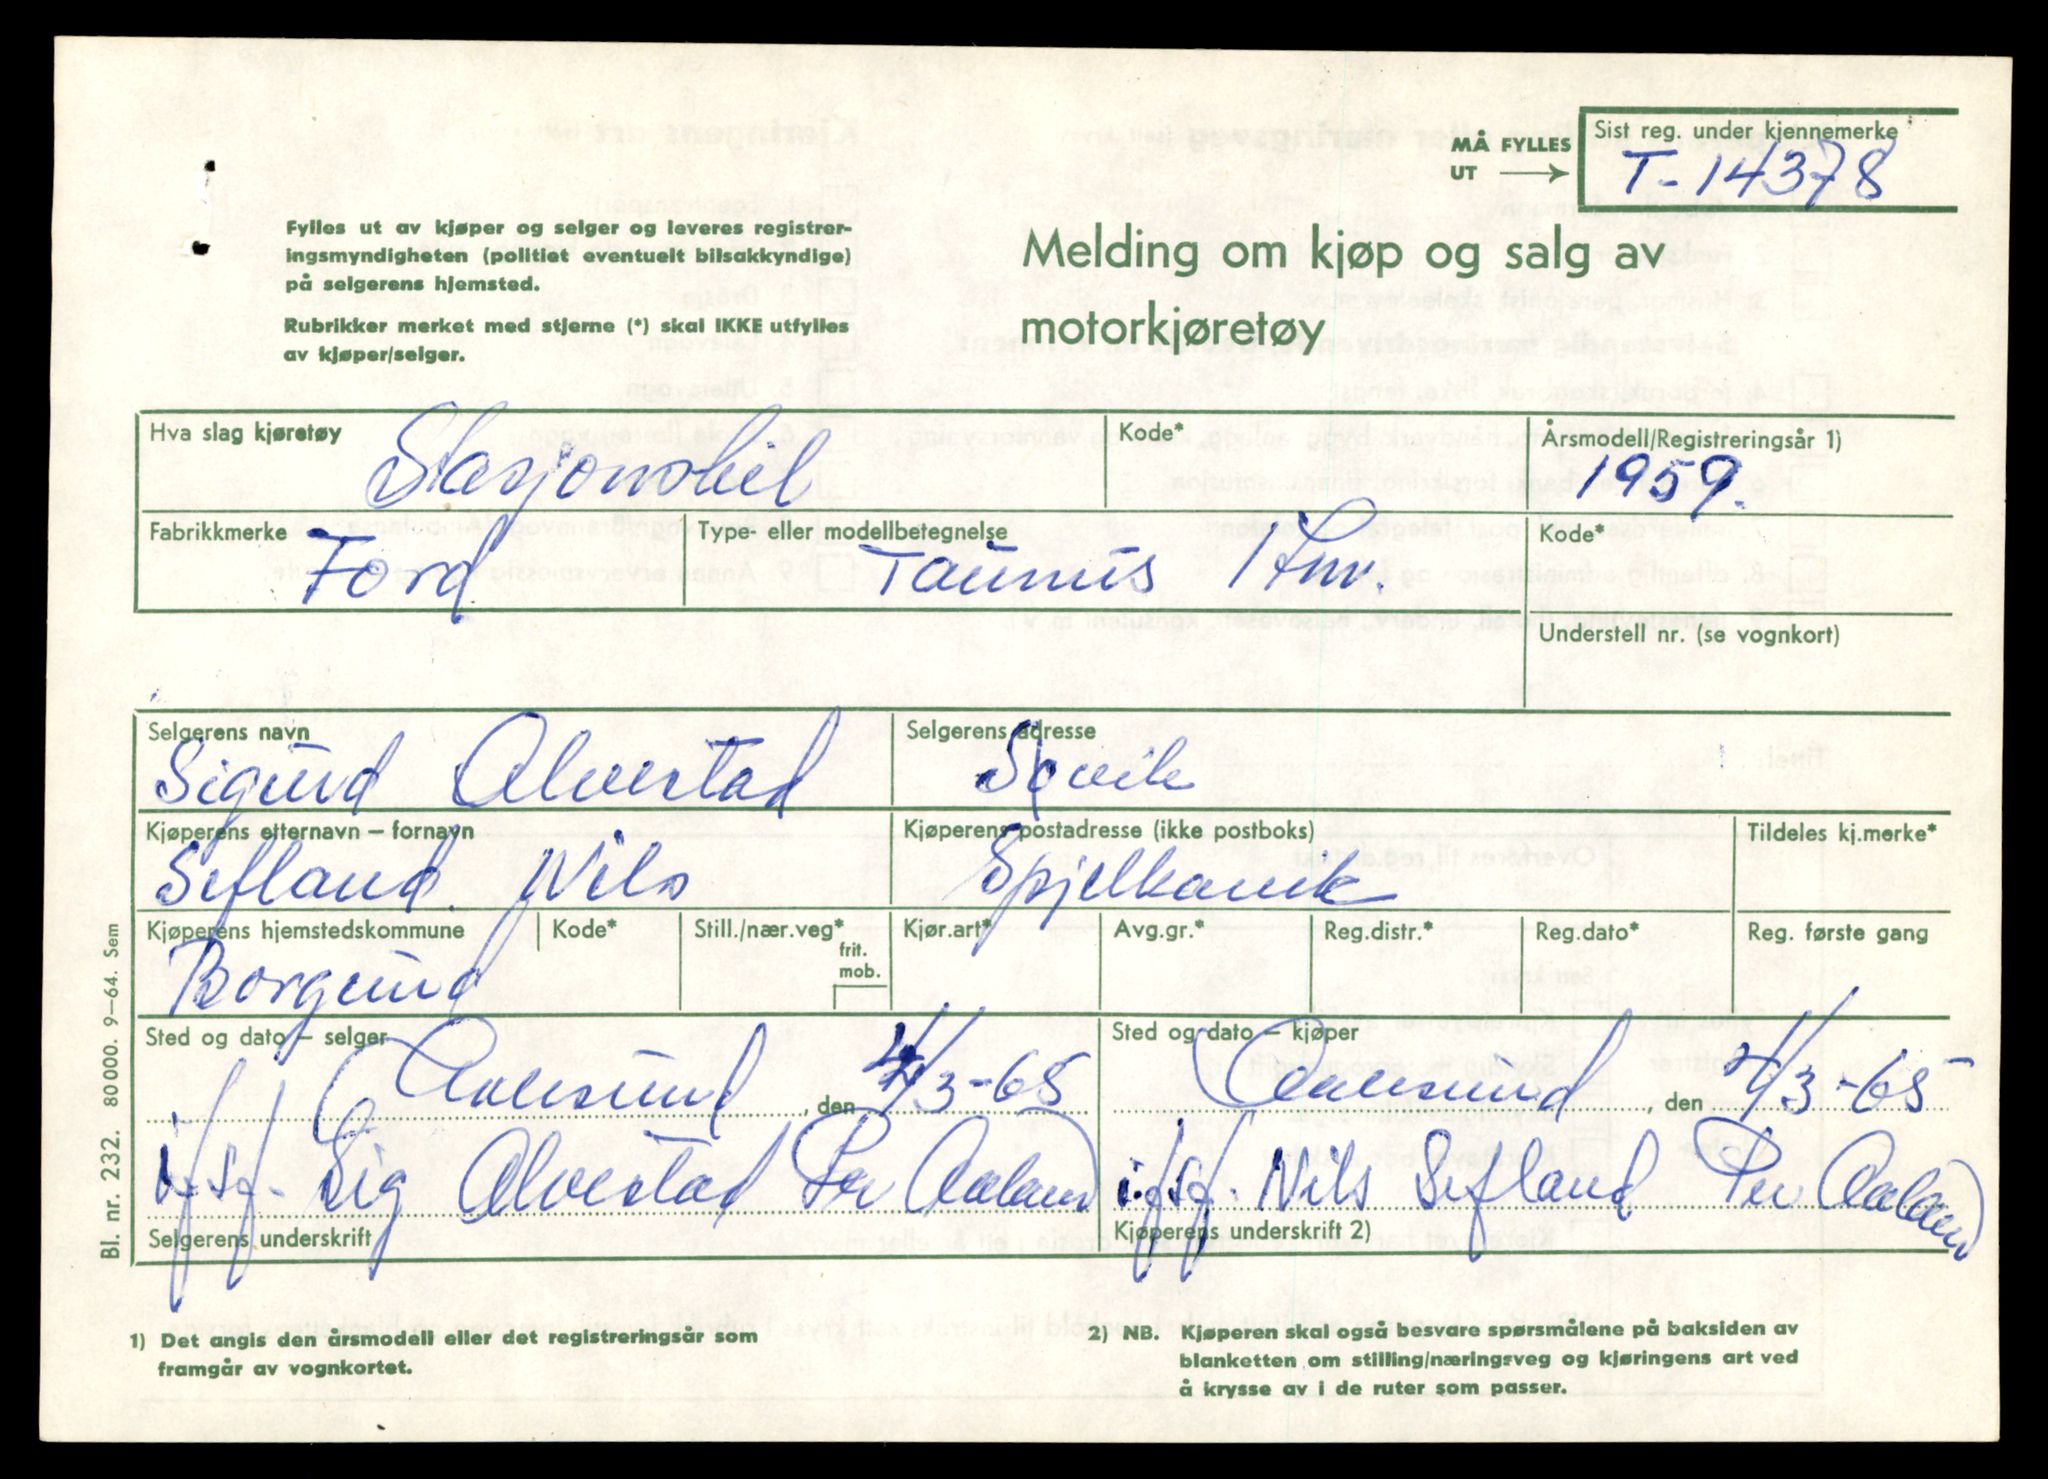 MÅ FYLLES
UT
Sist reg. under kjennemerke
T-14378
Fylles ut av kjøper og selger og leveres registrer-
ingsmyndigheten (politiet eventuelt bilsakkyndige)
på selgerens hjemsted.
Rubrikker merket med stjerne (*) skal IKKE utfylles
av kjøper/selger.
Melding om kjøp og salg av
motorkjøretøy
Hva slag kjøretøy
Stasjonsbil
Kode*
Årsmodell/Registreringsår 1)
1959.
Fabrikkmerke
Ford
Type- eller modellbetegnelse
Taunus 17m.
Kode*
Understell nr. (se vognkort)
Selgerens navn
Sigurd Alvestad
Selgerens adresse
Søvik
Kjøperens etternavn – fornavn
Sefland. Nils
Kjøperens postadresse (ikke postboks)
Spjelkavik
Tildeles kj.merke*
Kjøperens hjemstedskommune
Borgund
Kode*
Still./nær.veg*
frit.
mob.
Kjør.art*
Avg.gr.*
Reg.distr.*
Reg.dato*
Reg. første gang
Sted og dato – selger
Aalesund, den 4/3-65
i/flg. Sig Alvestad Per Aaland
Selgerens underskrift
Sted og dato – kjøper
Aalesund, den 4/3-65
i/flg. Nils Sefland Per Aaland
Kjøperens underskrift 2)
Bl. nr. 232. 80000. 9–64. Sem
1) Det angis den årsmodell eller det registreringsår som
framgår av vognkortet.
2) NB. Kjøperen skal også besvare spørsmålene på baksiden av
blanketten om stilling/næringsveg og kjøringens art ved
å krysse av i de ruter som passer.